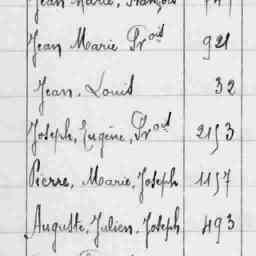 Jean Marie, François
Jean Marie Frois 921
Jean, Louis 32
Joseph, Eugène, Frois 2153
Pierre, Marie, Joseph 1157
Auguste, Julien, Joseph 493